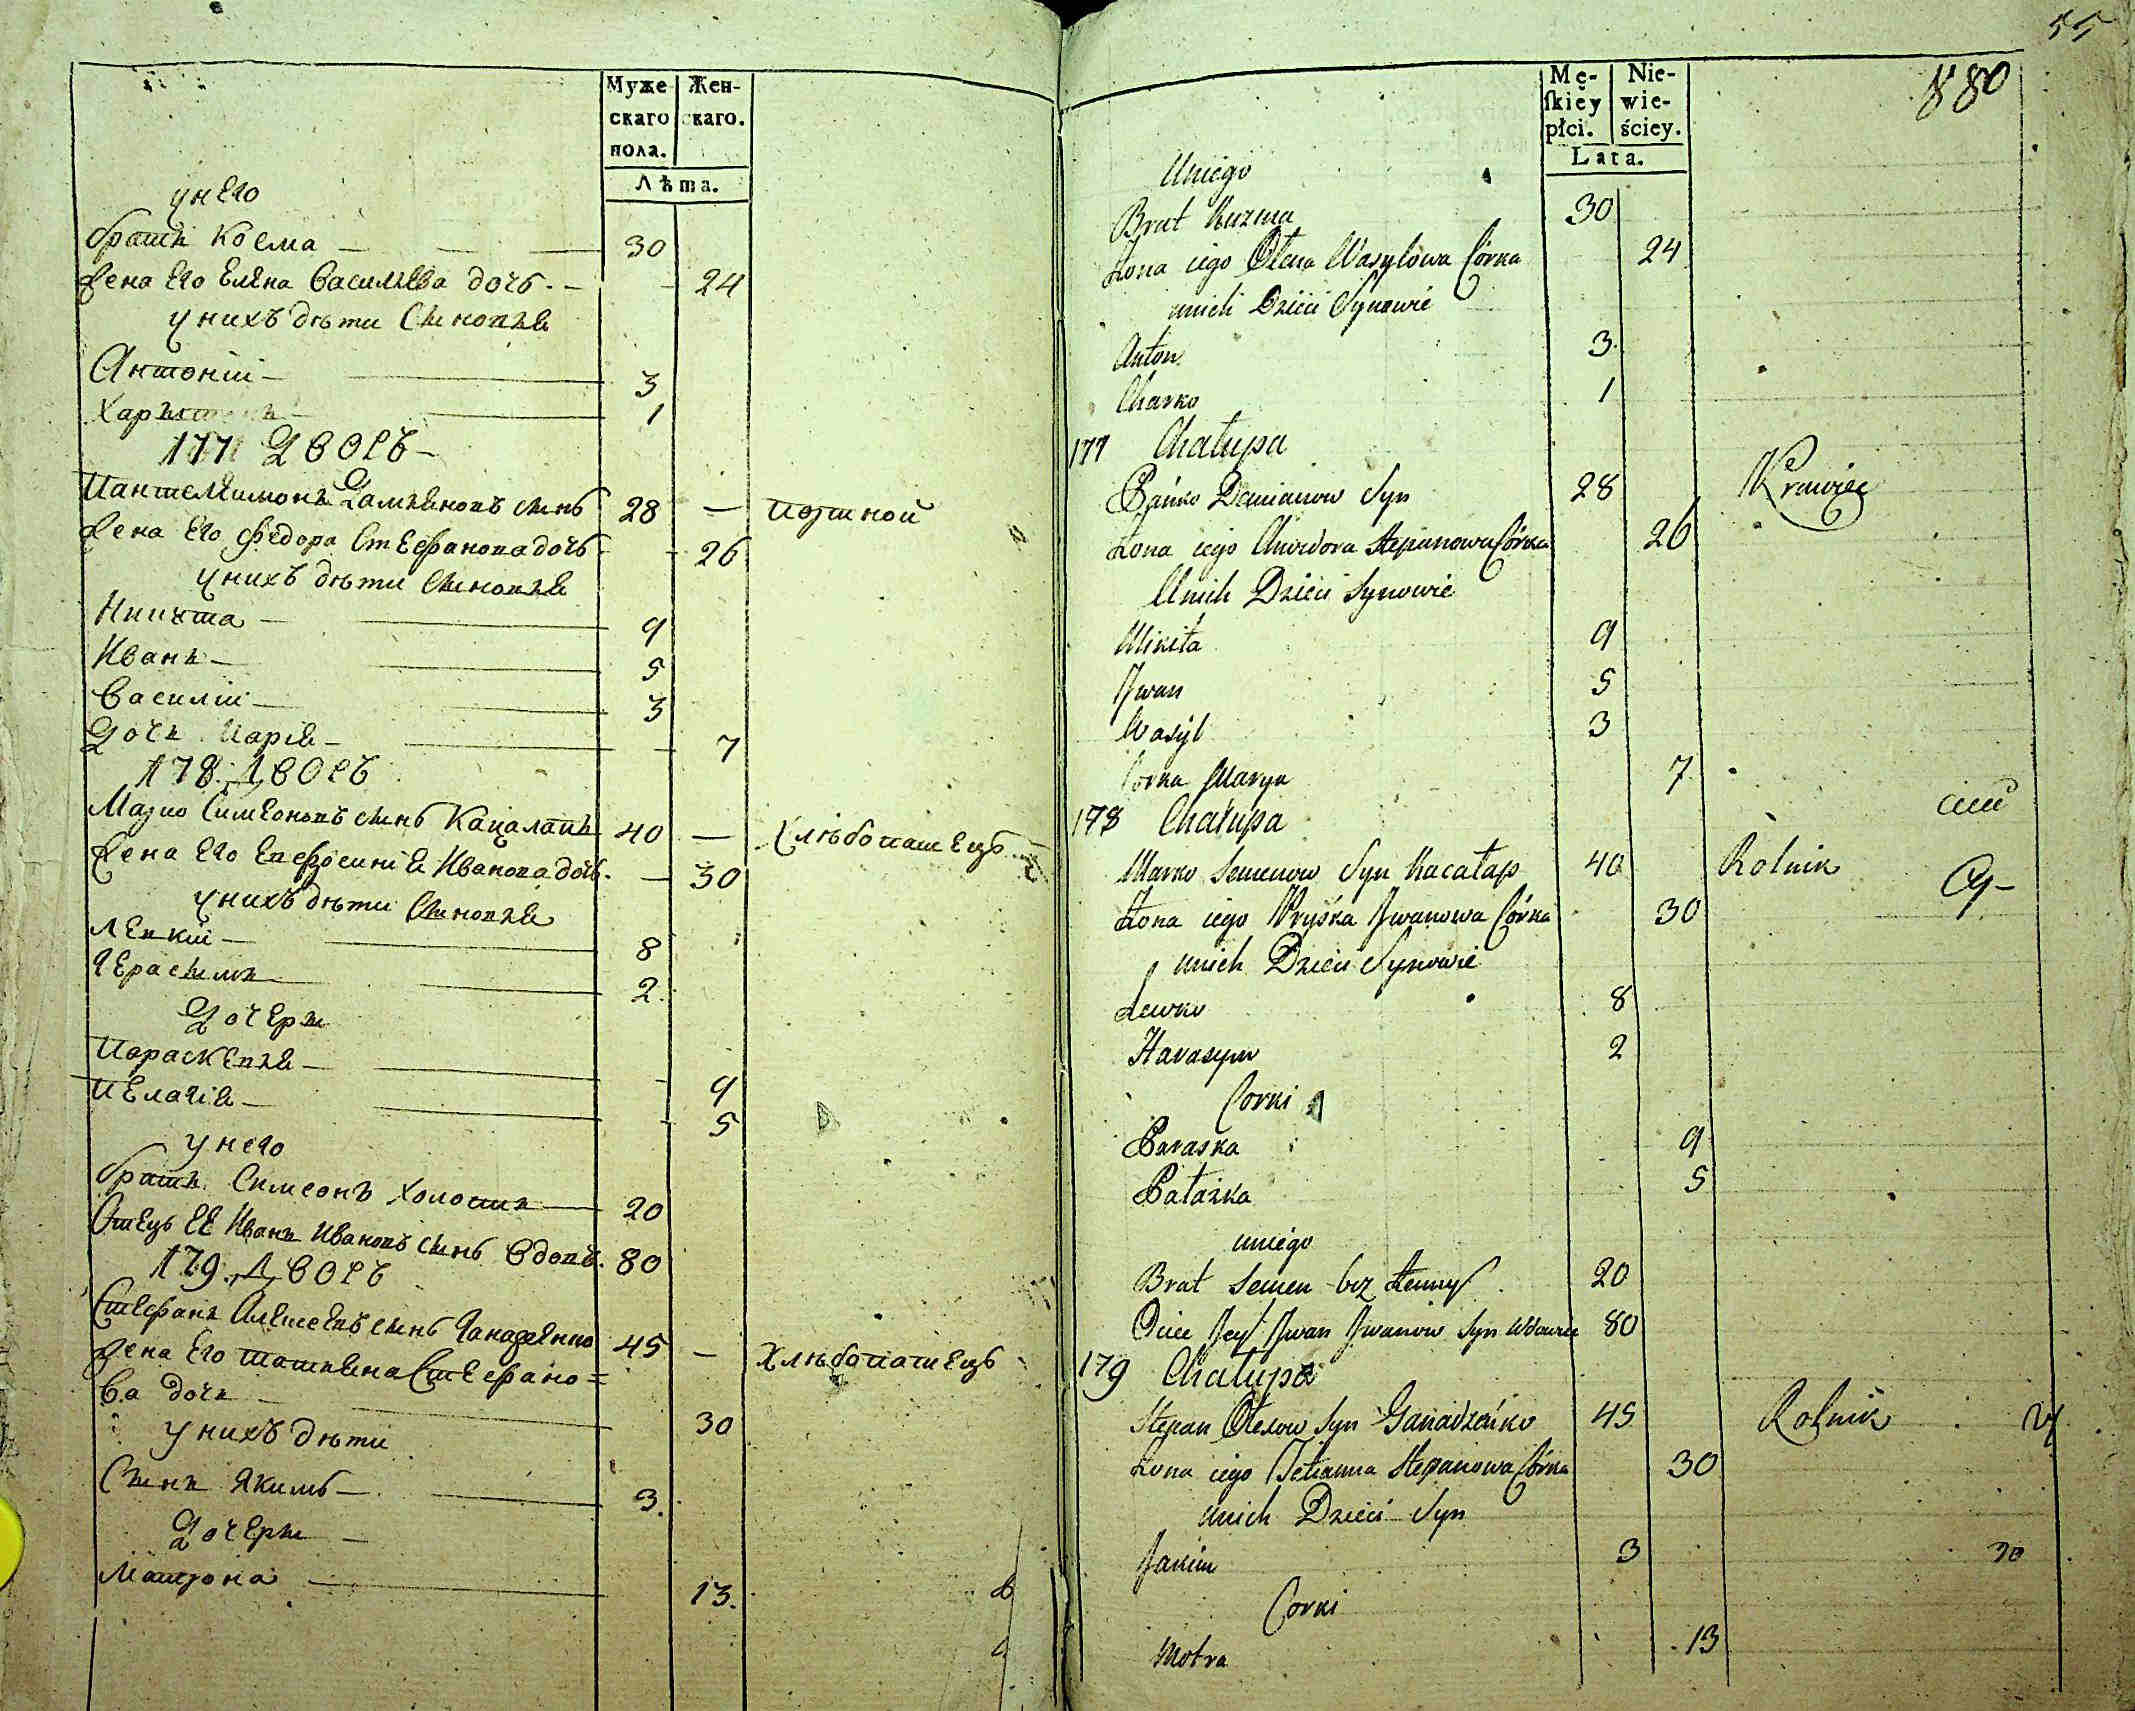 Муже
скаго
пола.
Жен-
скаго.
Лѣта.
у него
братъ Козма 30
жена Его Елена Василиева дочь 24
у нихъ дѣти Сыновья
Антоній 3
1
177 Дворъ
Пантелеимонъ Дамяновъ сынъ 28 — портной
жена Его Федора Стефанова дочь 26
у нихъ дѣти Сыновья
Никита 9
Иванъ 5
Василій 3
Дочь Марія 7
178 Дворъ
Марко Симеоновъ сынъ Кацалапъ 40 — Хлѣбопашецъ
жена Его Евфросинія Иванова дочь 30
у нихъ дѣти Сыновья
Левкій 8
Герасимъ 2
Дочери
Параскевія 9
Пелагія 5
у него
братъ Симеонъ Холостъ 20
Отецъ ЕЕ Иванъ Ивановъ сынъ вдовъ 80
179 Дворъ
Стефанъ Алексеевъ сынъ 45 — Хлѣбопашецъ
жена Его Татияна Стефано=
ва дочь 30
у нихъ дѣти
Сынъ Якимъ 3
Дочери
Матрона 13
55
880
Mę-
skiey
płci.
Nie-
wie-
ściey.
Lata.
Uniego
Brat Kuzma 30
Żona iego Olena Wasylowa Córka 24
unich Dzieci Synowie
Anton 3
Charko 1
177 Chałupa
Pańko Damianow Syn 28 Krawiec
Żona iego Chwedora Stepanowa Córka 26
Unich Dzieci Synowie
Mikita 9
Jwan 5
Wasyl 3
Corka Marya 7
178 Chałupa
Marko Semenow Syn Kacałap 40 Rolnik
Żona iego Pryśka Jwanowa Córka 30
unich Dzieci Synowie
Lewko 8
Harasym 2
Corki
Paraska 9
Pałażka 5
uniego
Brat Semen bez Żenny 20
Ociec Jey Jwan Jwanow Syn Wdowiec 80
179 Chałupa
Stepan Olexow Syn Ganadzeńko 45 Rolnik
Żona iego Tetianna Stepanowa Córka 30
unich Dzieci Syn
Jakim 3
Corki
Motra 13